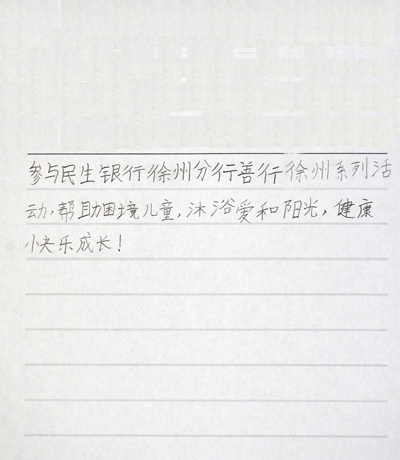 参与民生银行徐州分行善行徐州系列活
动,帮助困境儿童,沐浴爱和阳光,健康
快乐成长!